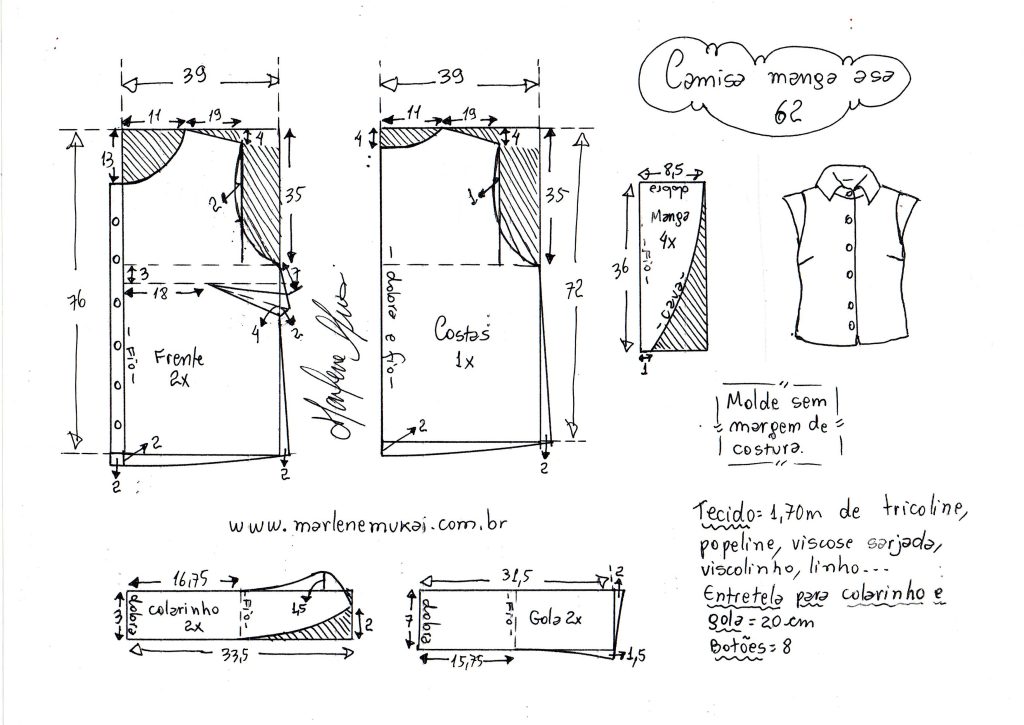 Camisa manga asa
62
39
11
19
4
13
2
35
76
3
18
7
4
2
- Fio -
Frente
2x
2
2
2
39
11
19
4
4
1
35
72
- dobra e fio -
Costas
1x
2
2
8,5
dobra
Manga
4x
- Fio -
- cava -
36
1
Marlene Mukai
Molde sem
margem de
costura.
www.marlenemukai.com.br
Tecido= 1,70m de tricoline,
popeline, viscose sarjada,
viscolinho, linho...
Entretela para colarinho e
gola = 20 cm
Botões = 8
16,75
3
dobra
colarinho
2x
- Fio -
1,5
2
33,5
31,5
2
7
dobra
Fio -
Gola 2x
15,75
1,5